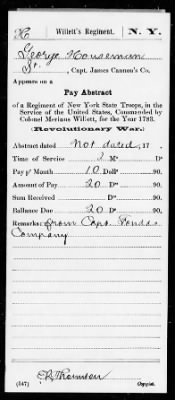 H | Willett's Regiment. | N. Y.
George Houseman
Appears on a , Capt. James Cannon's Co.,
Pay Abstract
of a Regiment of New York State Troops, in the
Service of the United States, Commanded by
Colonel Marinus Willett, for the Year 1783.
(Revolutionary War.)
Abstract dated Not dated, 17 .
Time of Service 2 Ms Ds
Pay ⅌ Month 10 Dolls 90.
Amount of Pay 20 Ds 90.
Sum Received Ds 90.
Ballance Due 20 Ds 90.
Remarks: from Capt. Fonda's
Company
(547) Copyist.